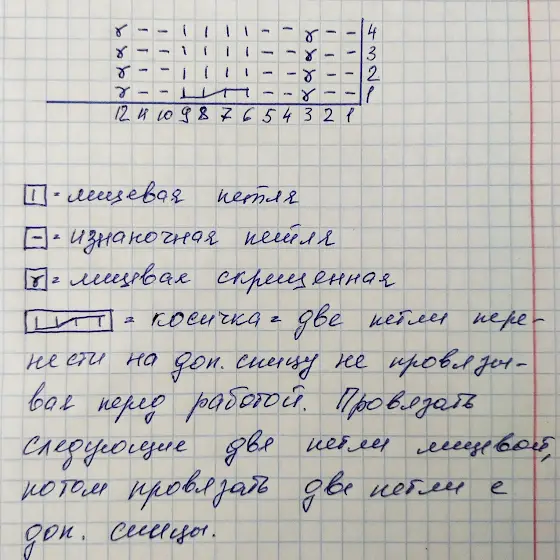 ɤ - - | | | | - - ɤ - - 4
ɤ - - | | | | - - ɤ - - 3
ɤ - - | | | | - - ɤ - - 2
ɤ - - - - ɤ - - 1
12 11 10 9 8 7 6 5 4 3 2 1
| = лицевая петля
- = изнаночная петля
ɤ = лицевая скрещенная
= косичка = две петли пере-
нести на доп. спицу не провязы-
вая перед работой. Провязать
следующие две петли лицевой,
потом провязать две петли с
доп. спицы.